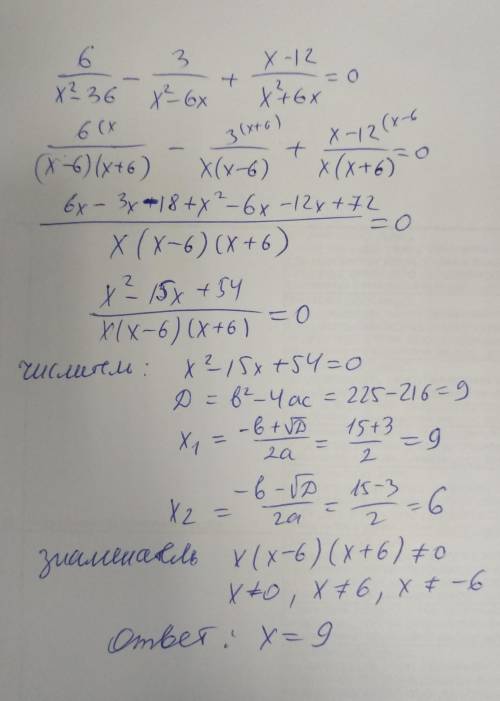 6/(x²-36) - 3/(x²-6x) + (x-12)/(x²+6x) = 0
6(x/((x-6)(x+6)) - 3(x+6)/(x(x-6)) + x-12(x-6/(x(x+6)) = 0
(6x - 3x - 18 + x² - 6x - 12x + 72)/(x(x-6)(x+6)) = 0
(x² - 15x + 54)/(x(x-6)(x+6)) = 0
числитель: x² - 15x + 54 = 0
D = b² - 4ac = 225 - 216 = 9
x₁ = (-b + √D)/2a = (15+3)/2 = 9
x₂ = (-b - √D)/2a = (15-3)/2 = 6
знаменатель x(x-6)(x+6) ≠ 0
x ≠ 0, x ≠ 6, x ≠ -6
Ответ: x = 9